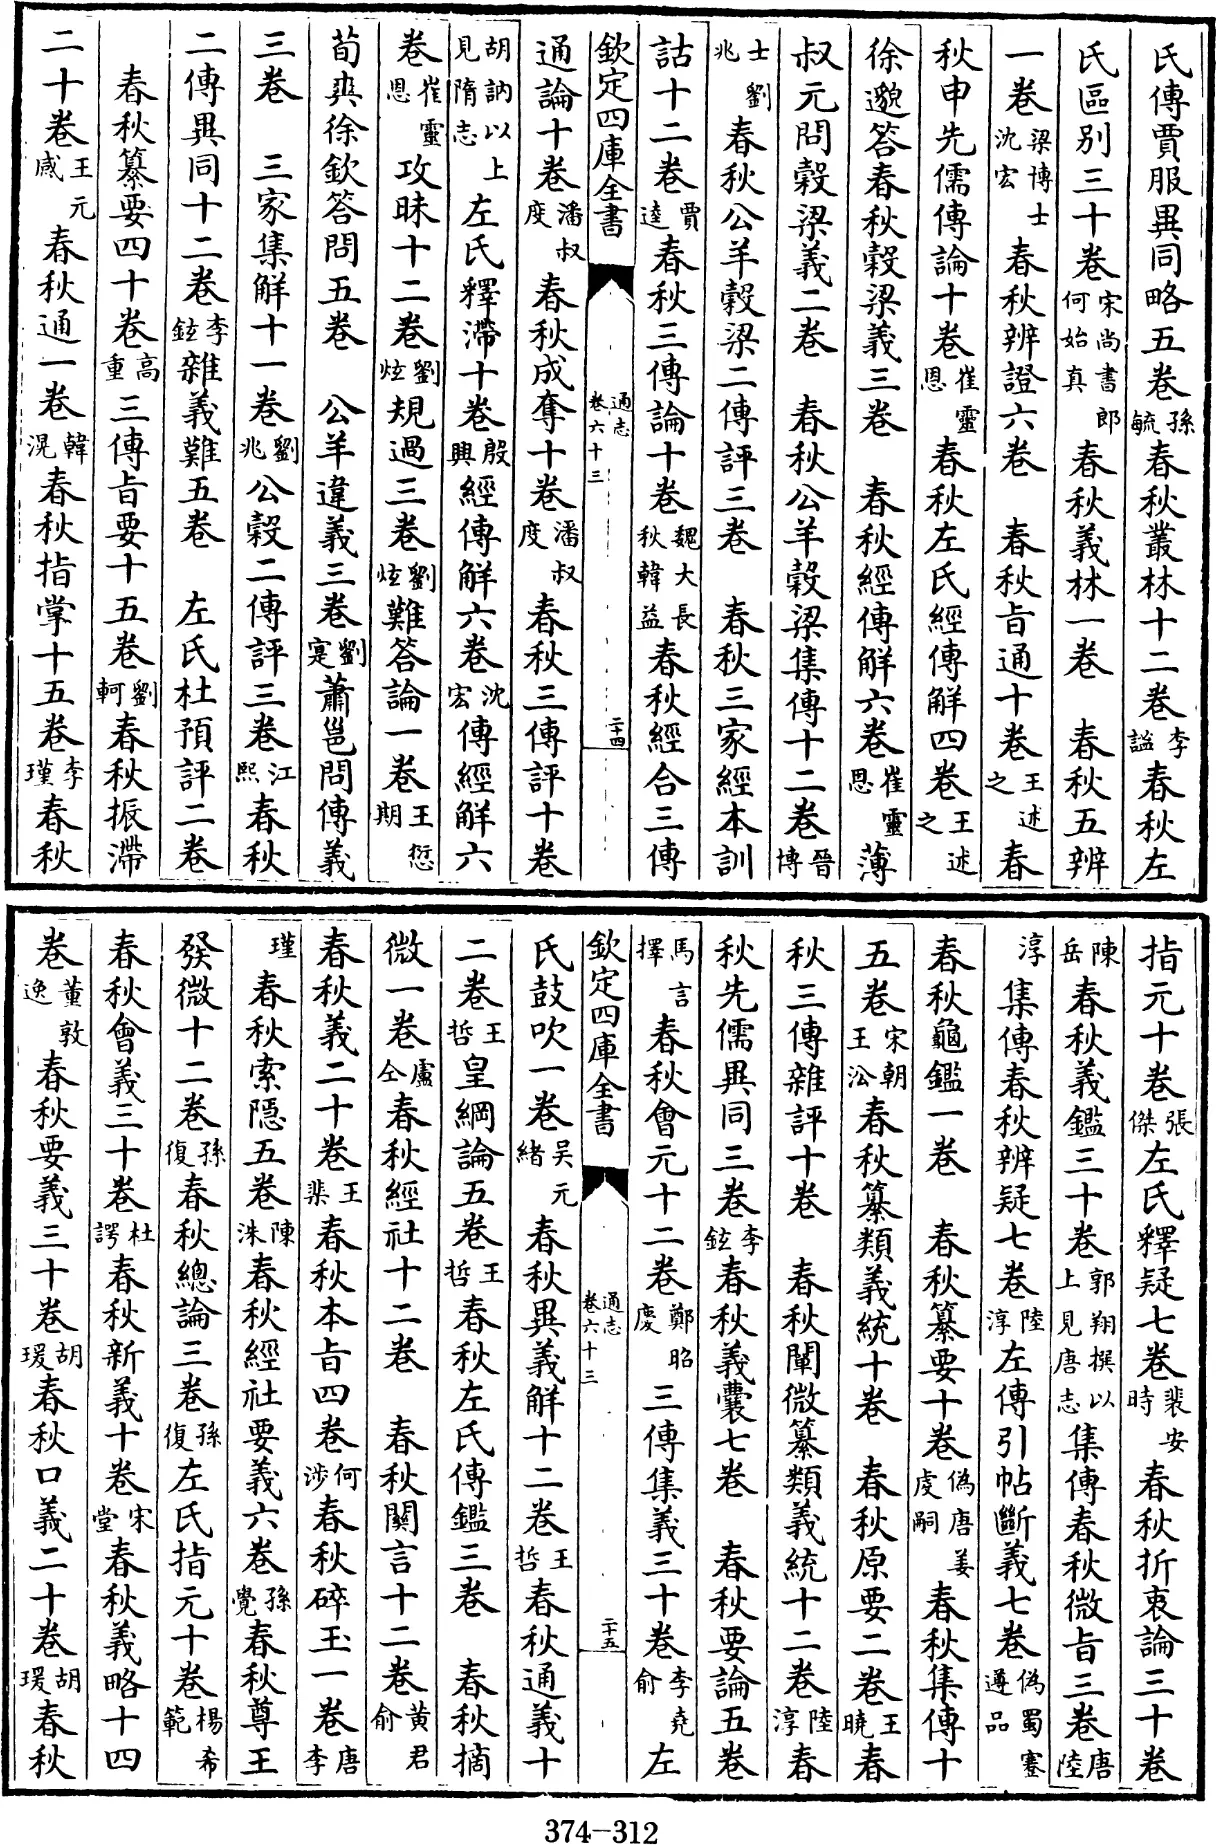 氏傳賈服異同略五卷孫毓春秋叢林十二卷李謐春秋左
氏區别三十卷宋尚書郎何始真春秋義林一卷　春秋五辨
一卷梁博士沈宏春秋辨證六卷　春秋㫖通十卷王述之春
秋申先儒傳論十卷崔靈恩春秋左氏經傳解四卷王述之
徐邈答春秋穀梁義三卷　春秋經傳解六卷崔靈恩薄
叔元問穀梁義二卷　春秋公羊穀梁集傳十二卷晉博
士劉兆春秋公羊穀梁二傳評三卷　春秋三家經本訓
詁十二卷賈逵春秋三傳論十卷魏大長秋韓益春秋經合三傳
欽定四庫全書　通志卷六十三　二十四
通論十卷潘叔度春秋成奪十卷潘叔度春秋三傳評十卷
胡訥以上見隋志左氏釋滯十卷殷興經傳解六卷沈宏傳經解六
卷崔靈恩攻昧十二卷劉炫規過三卷劉炫難答論一卷王愆期
荀爽徐欽答問五卷　公羊違義三卷劉寔蕭邕問傳義
三卷　三家集解十一卷劉兆公穀二傳評三卷江熙春秋
二傳異同十二卷李鉉雜義難五卷　左氏杜預評二卷
春秋纂要四十卷高重三傳㫖要十五卷劉軻春秋振滯
二十卷王元感春秋通一卷韓滉春秋指掌十五卷李瑾春秋
指元十卷張傑左氏釋疑七卷裴安時春秋折衷論三十卷
陳岳春秋義鑑三十卷郭翔撰以上見唐志集傳春秋微㫖三卷唐陸
淳集傳春秋辨疑七卷陸淳左傳引帖斷義七卷偽蜀蹇遵品
春秋龜鑑一卷　春秋纂要十卷偽唐姜虔嗣春秋集傳十
五卷宋朝王沿春秋纂類義統十卷　春秋原要二卷王曉春
秋三傳雜評十卷　春秋闡微纂類義統十二卷陸淳春
秋先儒異同三卷李鉉春秋義囊七卷　春秋要論五卷
馬言擇春秋會元十二卷鄭昭慶三傳集義三十卷李堯俞左
欽定四庫全書　通志卷六十三　二十五
氏鼓吹一卷吴元緒春秋異義解十二卷王哲春秋通義十
二卷王哲皇綱論五卷王哲春秋左氏傳鑑三卷　春秋摘
微一卷盧仝春秋經社十二卷　春秋闗言十二卷黄君俞
春秋義二十卷王棐春秋本㫖四卷何涉春秋碎玉一卷唐李
瑾春秋索隱五卷陳洙春秋經社要義六卷孫覺春秋尊王
發微十二卷孫復春秋總論三卷孫復左氏指元十卷楊希範
春秋會義三十卷杜諤春秋新義十卷宋堂春秋義略十四
卷董敦逸春秋要義三十卷胡瑗春秋口義二十卷胡瑗春秋
374-312